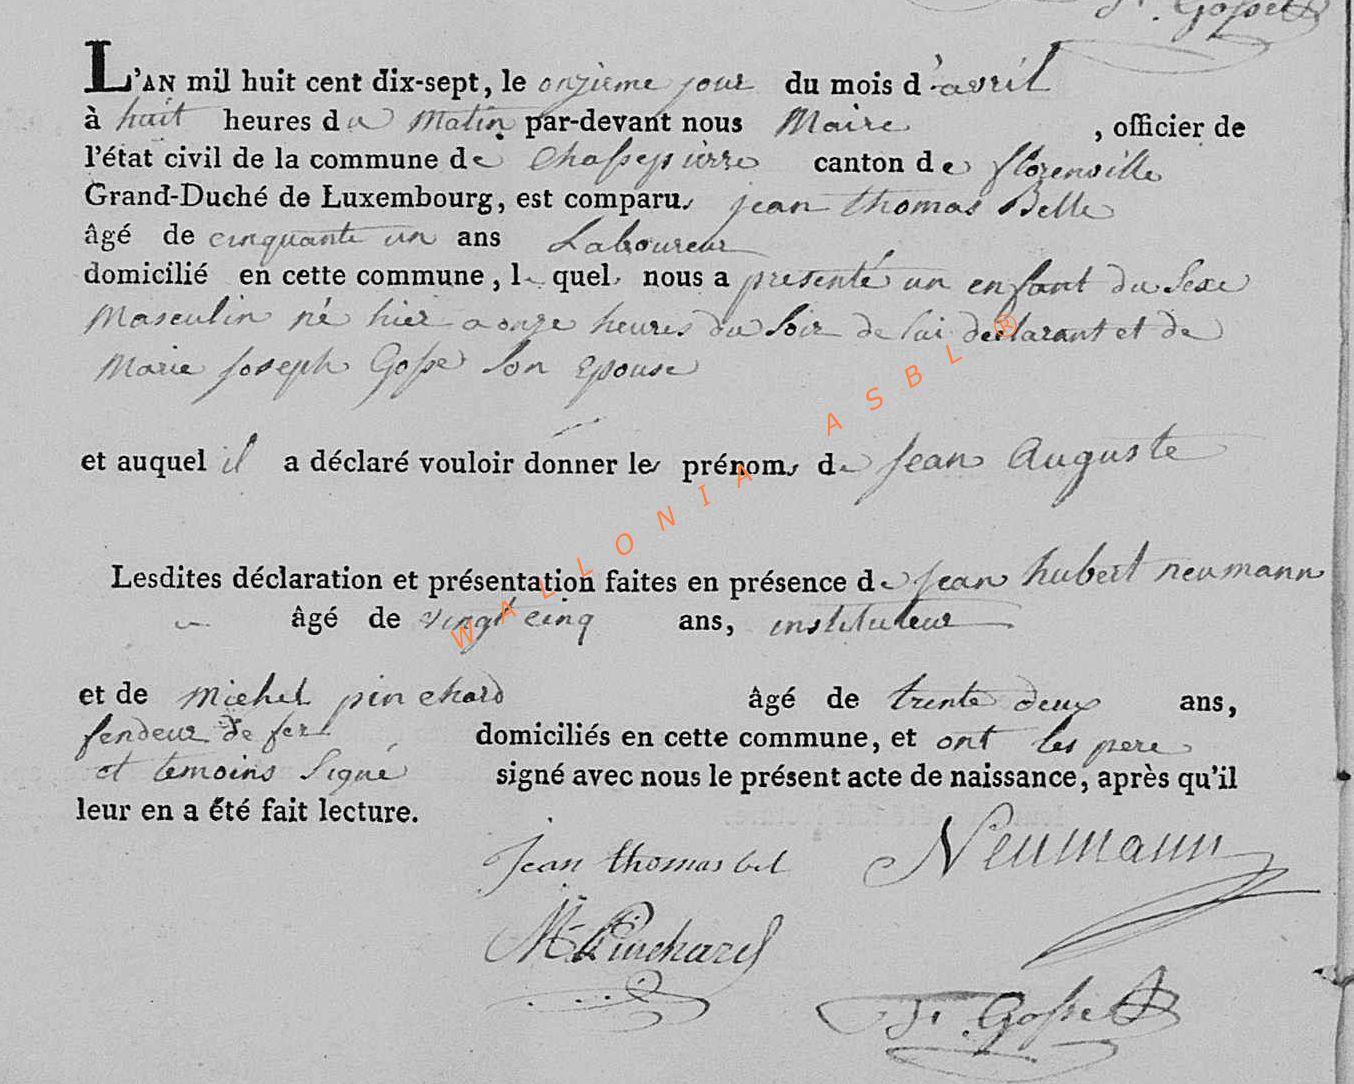 J. Gosset
L'AN mil huit cent dix-sept, le onzieme jour du mois d'avril
à huit heures du Matin par-devant nous Maire , officier de
l'état civil de la commune de Chassepierre canton de florenville
Grand-Duché de Luxembourg, est comparu, jean thomas Belle
âgé de cinquante un ans Laboureur
domicilié en cette commune, le quel nous a presenté un enfant du Sexe
Masculin né hier a onze heures du Soir de lui declarant et de
Marie joseph Gosse Son Epouse
et auquel il a déclaré vouloir donner les prénoms de Jean Auguste
Lesdites déclaration et présentation faites en présence de Jean hubert neumann
âgé de vingt cinq ans, instituteur
et de Michel pinchard âgé de trente deux ans,
fendeur de fer domiciliés en cette commune, et ont les pere
et temoins Signé signé avec nous le présent acte de naissance, après qu'il
leur en a été fait lecture.
Jean thomas bel Neumann
M. Pinchard
J. Gosset
WALLONIA ASBL ®